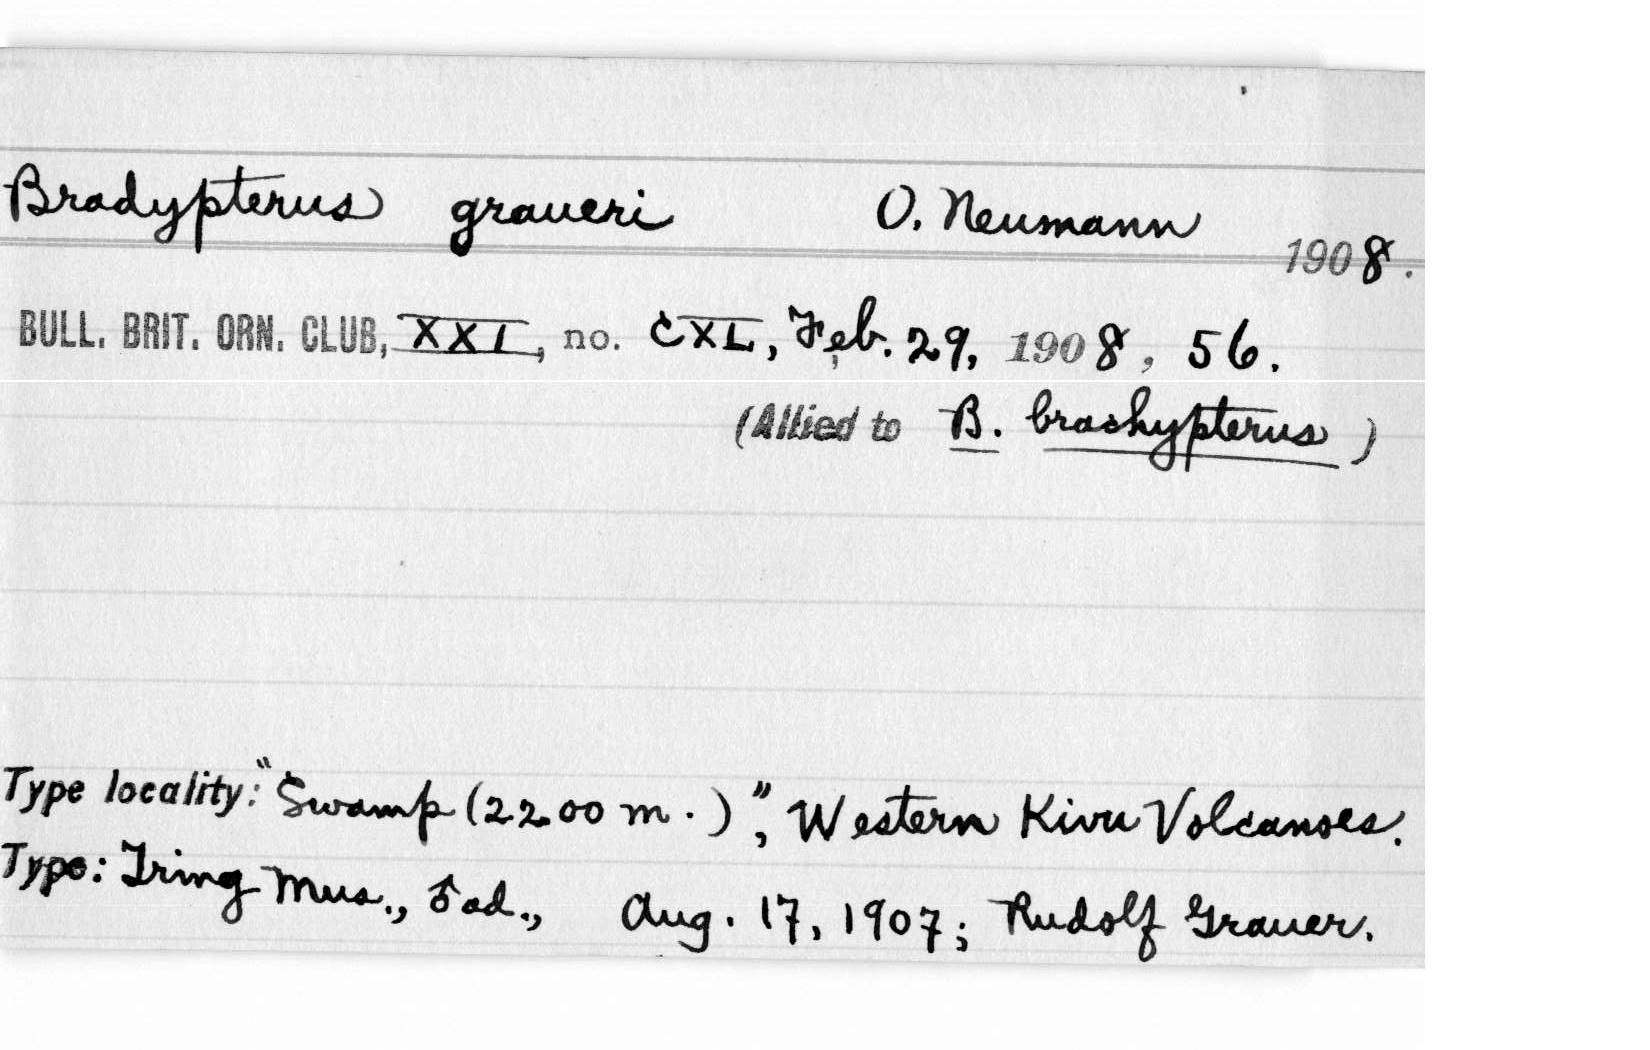 Bradypterus graueri O. Neumann 1908.
BULL. BRIT. ORN. CLUB, XXI, no. CXL, Feb. 29, 1908, 56.
(Allied to B. brachypterus)
Type locality: "Swamp (2200 m.)", Western Kivu Volcanoes.
Type: Tring Mus., ♂ ad., Aug. 17, 1907; Rudolf Grauer.